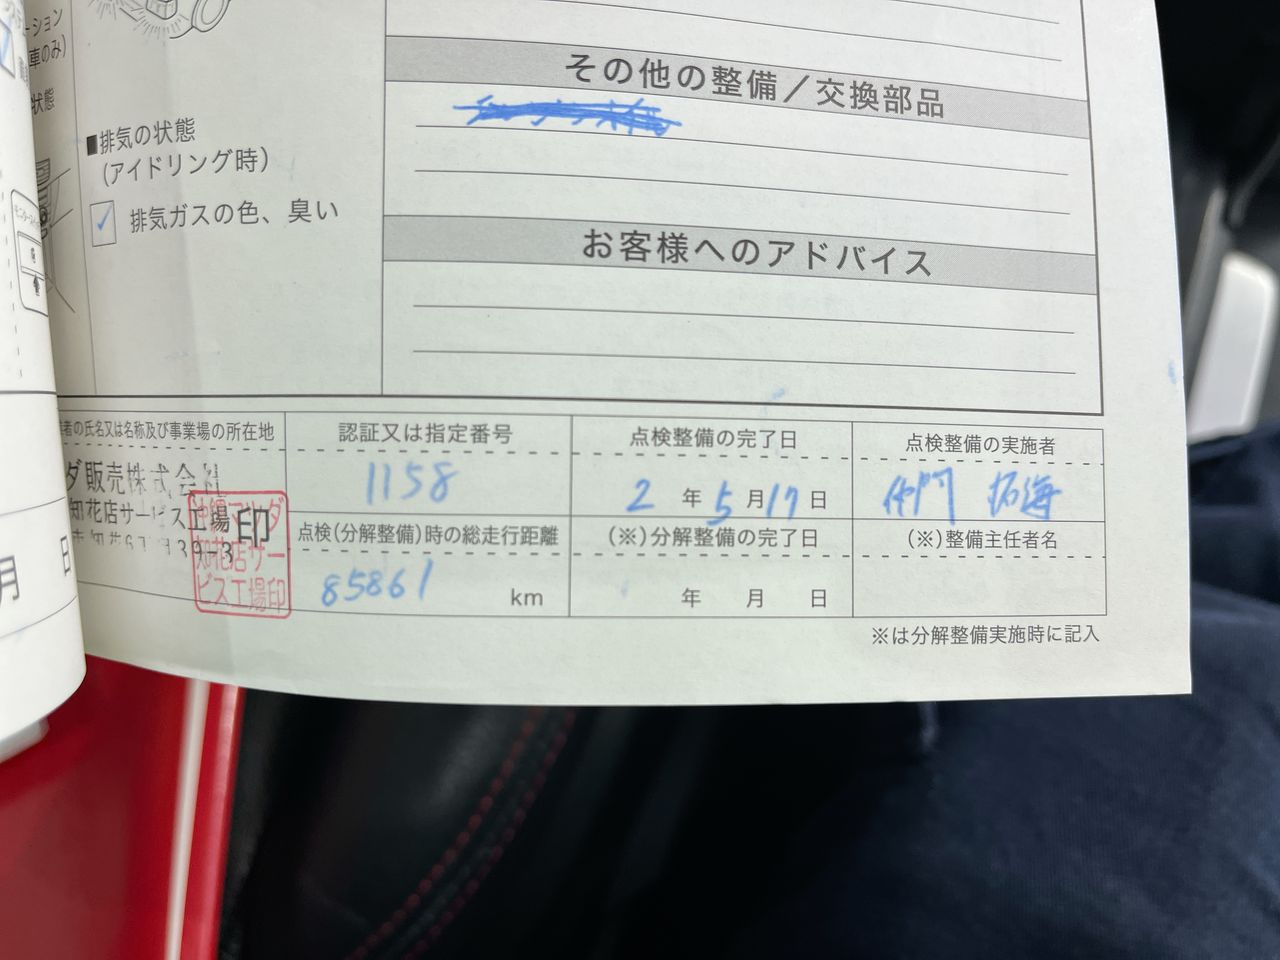 ーション
車のみ)
状態
■排気の状態
(アイドリング時)
✓ 排気ガスの色、臭い
その他の整備／交換部品
お客様へのアドバイス
者の氏名又は名称及び事業場の所在地
ダ販売株式会社
知花店サービス工場
39-3
印
沖縄マツダ
知花店サー
ビス工場印
認証又は指定番号
1158
点検整備の完了日
2 年 5 月 17 日
点検整備の実施者
仲門 拓海
点検(分解整備)時の総走行距離
85861 km
(※)分解整備の完了日
年 月 日
(※)整備主任者名
※は分解整備実施時に記入
月 日